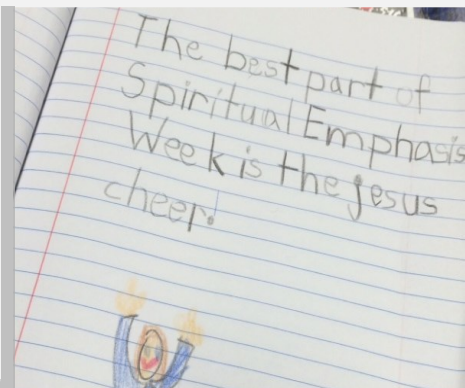 The best part of
Spiritual Emphasis
Week is the jesus
cheer.